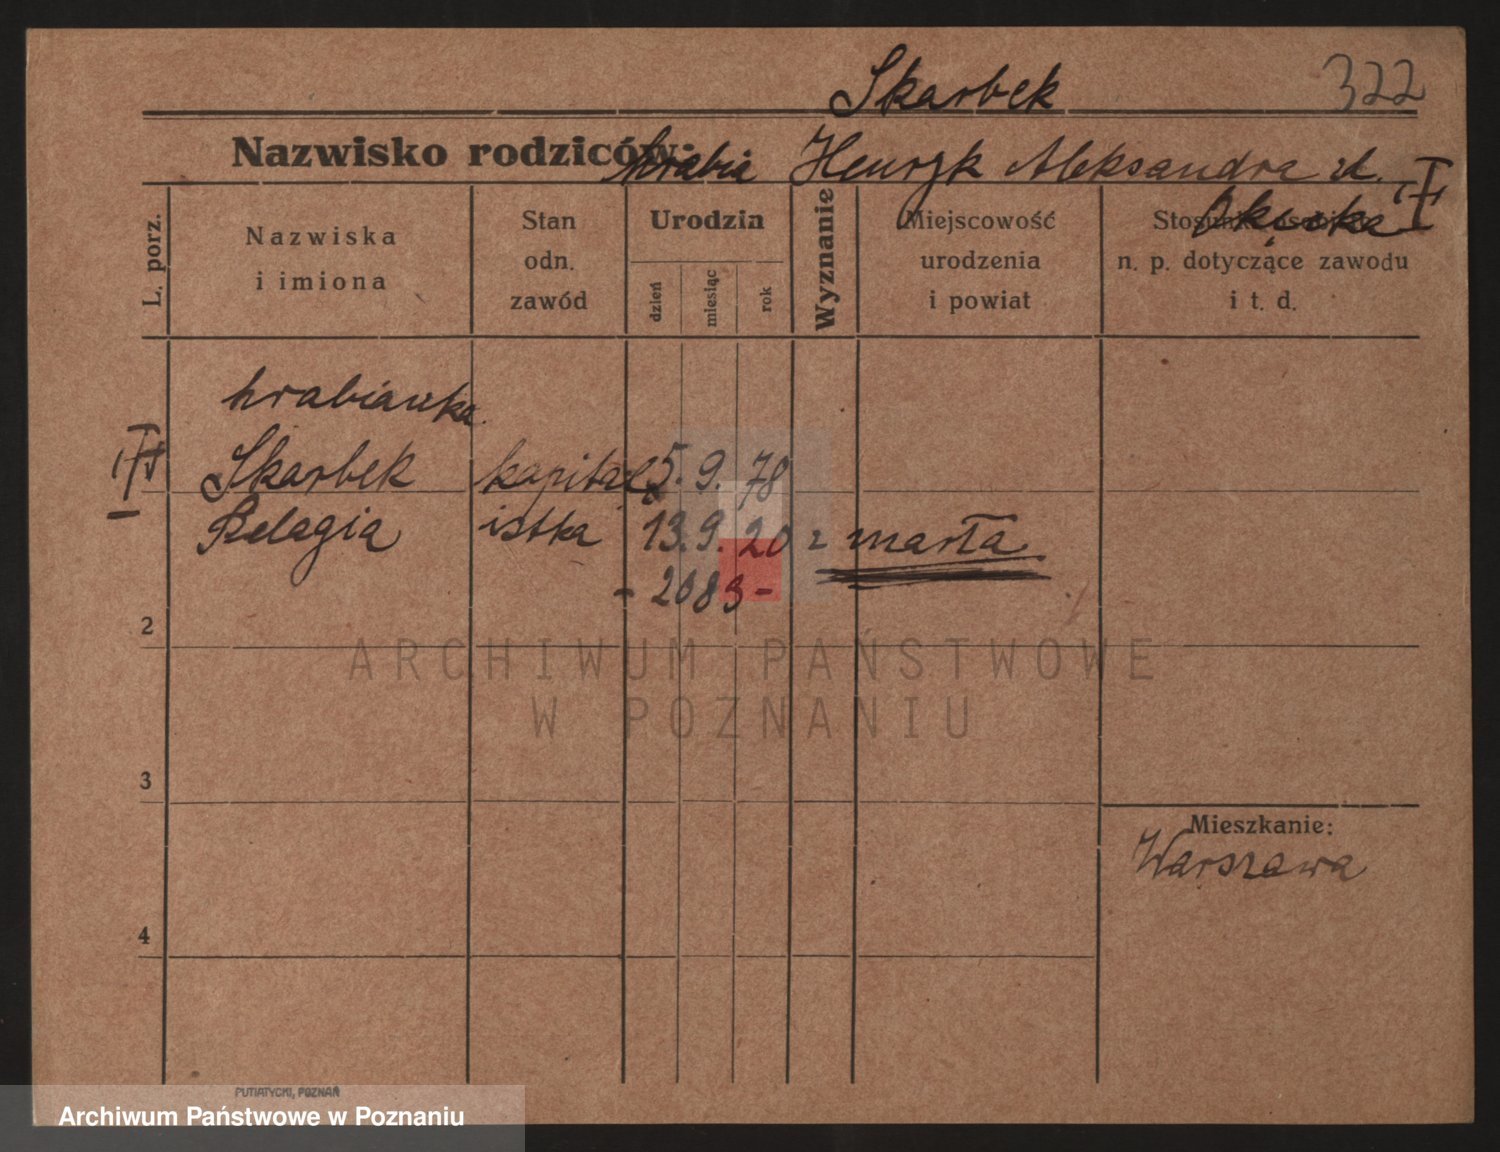 Skarbek
322
Nazwisko rodziców: hrabia Henryk Aleksandra
L. porz.
Nazwiska
i imiona
Stan
odn.
zawód
Urodzin
dzień
miesiąc
rok
Wyznanie
Miejscowość
urodzenia
i powiat
n. p. dotyczące zawodu
i t. d.
hrabianka
Skarbek kapital 5. 9. 78
Pelagia istka 13. 9. 20 zmarła
- 2083 -
2
3
4
Mieszkanie:
Warszawa
ARCHIWUM PAŃSTWOWE
W POZNANIU
PUTIATYCKI, POZNAŃ
Archiwum Państwowe w Poznaniu